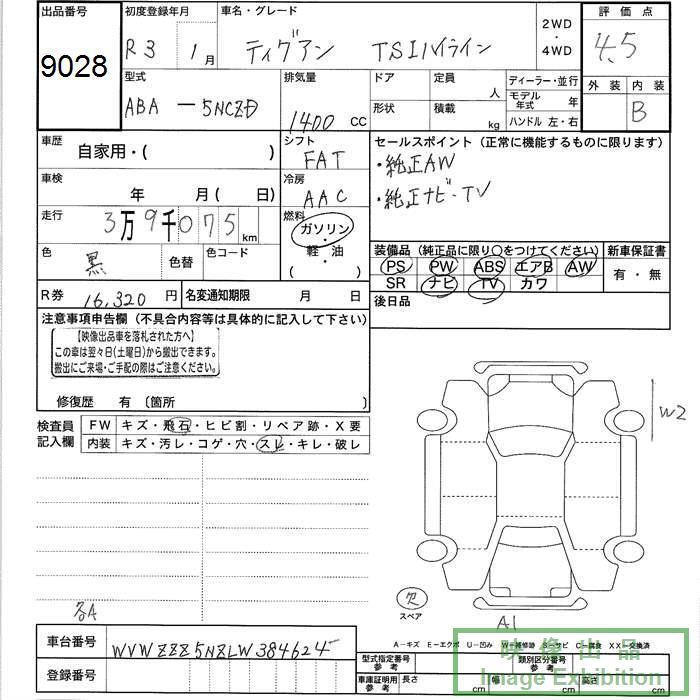 出品番号
9028
初度登録年月
R3 1月
車名・グレード
ティグアン TSIハイライン
2WD
・
4WD
評価点
4.5
型式
ABA-5NCZD
排気量
1400 CC
ドア
定員
人
形状
積載
kg
ディーラー・並行
モデル年式 年
ハンドル 左・右
外装
内装
B
車歴
自家用・( )
シフト
FAT
セールスポイント(正常に機能するものに限ります)
・純正AW
・純正ナビ・TV
車検
年 月( 日)
冷房
AAC
走行
3万9千075km
燃料
ガソリン
・
軽・油
( )
色
黒
色替
色コード
装備品(純正品に限り○をつけてください)
PS PW ABS エアB AW
SR ナビ TV カワ
新車保証書
有・無
R券
16,320円
名変通知期限 月 日
後日品
注意事項申告欄(不具合内容等は具体的に記入して下さい)
【映像出品車を落札された方へ】
この車は翌々日(土曜日)から搬出できます。
搬出にご来場・ご手配の際はご注意ください。
修復歴 有〔箇所 〕
検査員
記入欄
FW キズ・飛石・ヒビ割・リペア跡・X要
内装 キズ・汚レ・コゲ・穴・スレ・キレ・破レ
W2
欠
スペア
A1
各A
A-キズ E-エクボ U-凹み W-補修跡 S-サビ C-腐食 XX-交換済
車台番号
WVWZZZ5NZLW384624
登録番号
型式指定番号
参考
類別区分番号
参考
車庫証明用
参考
長さ cm
幅 cm
高さ cm
映像出品
Image Exhibition